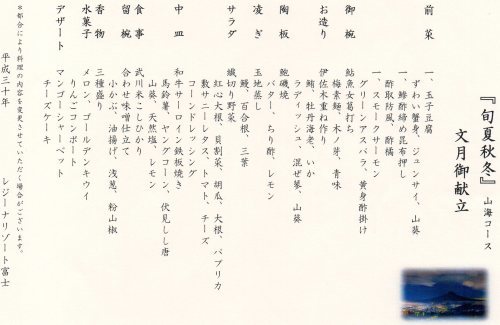 『旬夏秋冬』 山海コース
文月御献立
前菜
一、玉子豆腐
ずわい蟹身、ジュンサイ、山葵
一、鯵酢締め昆布押し
酢取防風、酢橘
一、スモークサーモン
グリーンアスパラ、黄身酢掛け
御椀
鮎魚女葛打ち
梅素麺、木ノ芽、青味
お造り
伊佐木重ね作り
鮪、牡丹海老、いか
ラディッシュ、混ぜ蓼、山葵
陶板
鮑磯焼
バター、ちり酢、レモン
凌ぎ
玉地蒸し
鰻、百合根、三葉
サラダ
繊切り野菜
紅心大根、貝割菜、胡瓜、大根、パプリカ
敷サニーレタス、トマト、チーズ
コーンドレッシング
中皿
和牛サーロイン鉄板焼き
馬鈴薯、ヤングコーン、伏見しし唐
山葵、天然塩、レモン
食事
武川米こしひかり
留椀
合わせ味噌仕立て
小かぶ、油揚げ、浅葱、粉山椒
香物
三種盛り
水菓子
メロン、ゴールデンキウイ
りんごコンポート
デザート
マンゴーシャーベット
チーズケーキ
＊都合により料理の内容を変更させていただく場合がございます。
平成三十年 レジーナリゾート富士